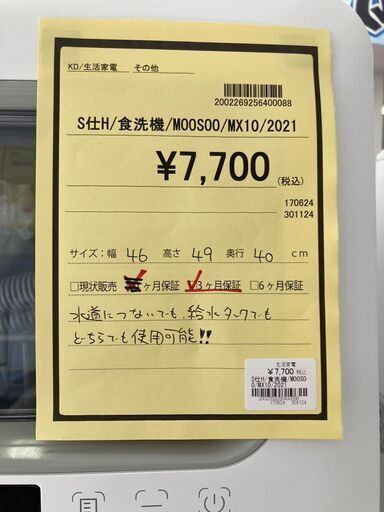 KD/生活家電 その他
2002269256400088
S仕H/食洗機/MOOSOO/MX10/2021
¥7,700
(税込)
170624
301124
サイズ:幅 46 高さ 49 奥行 40 cm
□現状販売 ヶ月保証 □3ヶ月保証 □6ヶ月保証
水道につないでも、給水タンクでも
どちらでも使用可能!!
生活家電
¥7,700 税込
S仕H/食洗機/MOOSO
O/MX10/2021
2002269256400088
170624 301124